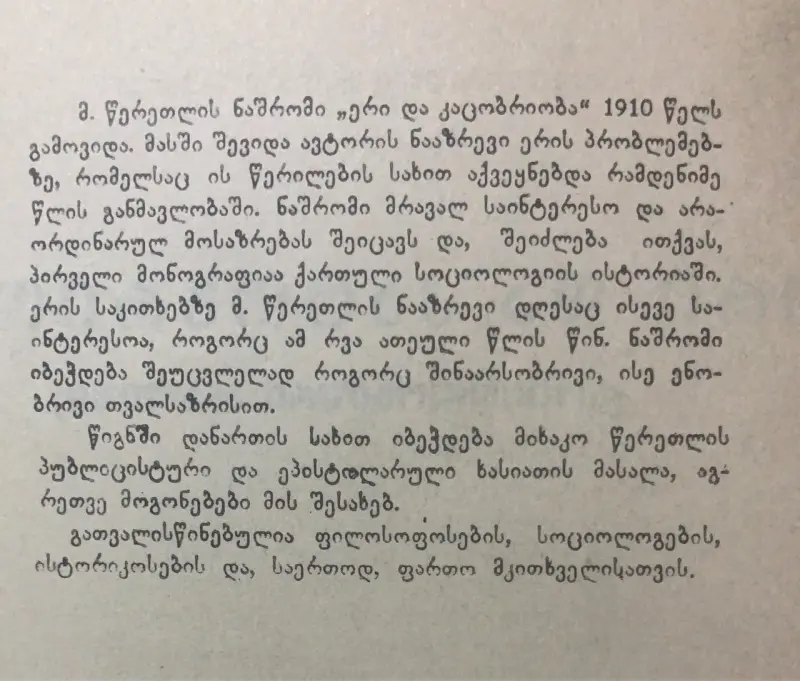 მ. წერეთლის ნაშრომი „ერი და კაცობრიობა“ 1910 წელს
გამოვიდა. მასში შევიდა ავტორის ნააზრევი ერის პრობლემებ-
ზე, რომელსაც ის წერილების სახით აქვეყნებდა რამდენიმე
წლის განმავლობაში. ნაშრომი მრავალ საინტერესო და არა-
ორდინარულ მოსაზრებას შეიცავს და, შეიძლება ითქვას,
პირველი მონოგრაფიაა ქართული სოციოლოგიის ისტორიაში.
ერის საკითხებზე მ. წერეთლის ნააზრევი დღესაც ისევე სა-
ინტერესოა, როგორც ამ რვა ათეული წლის წინ. ნაშრომი
იბეჭდება შეუცვლელად როგორც შინაარსობრივი, ისე ენო-
ბრივი თვალსაზრისით.
წიგნში დანართის სახით იბეჭდება მიხაკო წერეთლის
პუბლიცისტური და ეპისტოლარული ხასიათის მასალა, აგ-
რეთვე მოგონებები მის შესახებ.
გათვალისწინებულია ფილოსოფოსების, სოციოლოგების,
ისტორიკოსების და, საერთოდ, ფართო მკითხველისათვის.